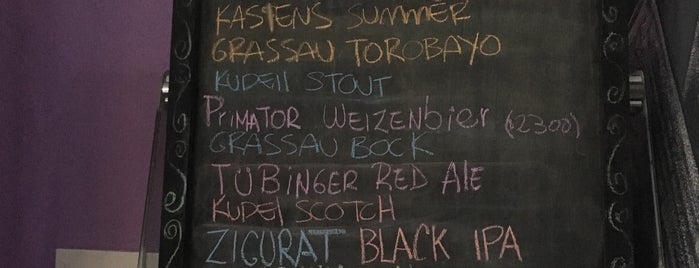 KASTENS SUMMER
GRASSAU TOROBAYO
KUDELL STOUT
PRIMATOR WEIZENbier (2300)
GRASSAU BOCK
TÜBINGER RED ALE
KUDEL SCOTCH
ZIGURAT BLACK IPA